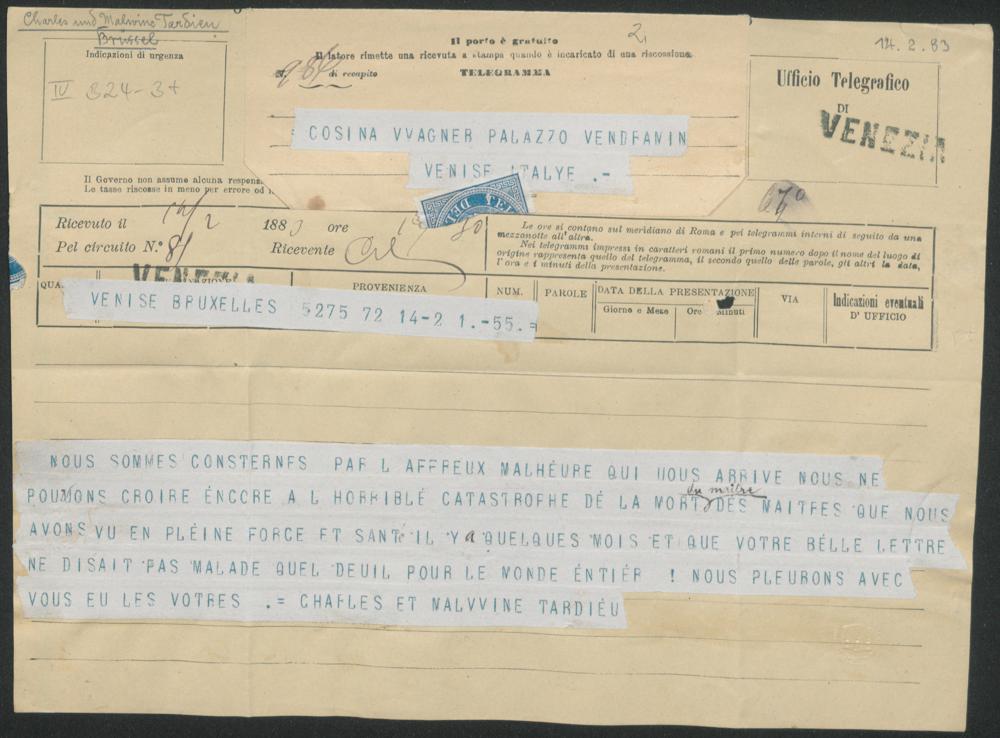 Charles und Malwine Tardieu
Brüssel
Indicazioni di urgenza
IV 324-3+
Il porto è gratuito
Il latore rimette una ricevuta a stampa quando è incaricato di una riscossione.
N. 984 di recapito
TELEGRAMMA
2,
14. 2. 83
Ufficio Telegrafico
DI
VENEZIA
= COSINA VVAGNER PALAZZO VENDFAMIN
VENISE ITALYE .-
Il Governo non assume alcuna respons
Le tasse riscosse in meno per errore od
Ricevuto il 14/2 1883 ore
Pel circuito N.° 81 Ricevente
Le ore si contano sul meridiano di Roma e pei telegrammi interni di seguito da una
mezzanotte all'altra.
Nei telegrammi impressi in caratteri romani il primo numero dopo il nome del luogo di
origine rappresenta quello del telegramma, il secondo quello delle parole, gli altri la data,
l'ora e i minuti della presentazione.
VENEZIA
QUA
PROVENIENZA
NUM.
PAROLE
DATA DELLA PRESENTAZIONE
Giorno e Mese
Ore Minuti
VIA
Indicazioni eventuali
D' UFFICIO
VENISE BRUXELLES 5275 72 14-2 1.-55.=
NOUS SOMMES CONSTERNFS PAR L AFFREUX MALHÉURE QUI UOUS ARRIVE NOUS NE
POUMONS CROIRE ÉNCORE A L HORRIBLÉ CATASTROPHE DÉ LA MORT du maître DÉS MAITFES QUE NOUS
AVONS VU EN PLÉINE FORCE ET SANTé IL Y a QUELQUES MOIS ET QUE VOTRE BÉLLE LETTRE
NE DISAIT PAS MALADE QUEL DEUIL POUR LE MONDE ÉNTIÉR ! NOUS PLEURONS AVEC
VOUS EU LES VOTRES .= CHAFLES ET MALVVINE TARDIÉU